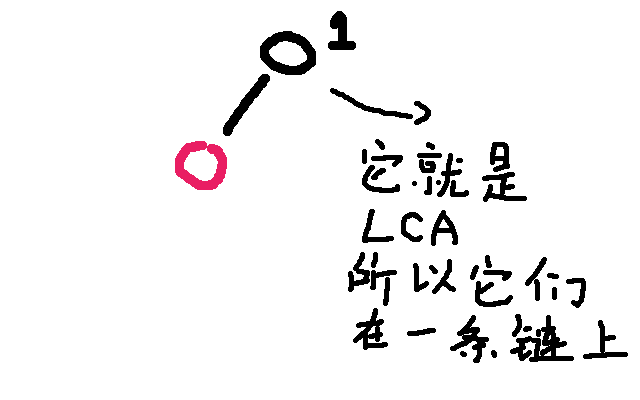 1
它就是
LCA
所以它们
在一条链上